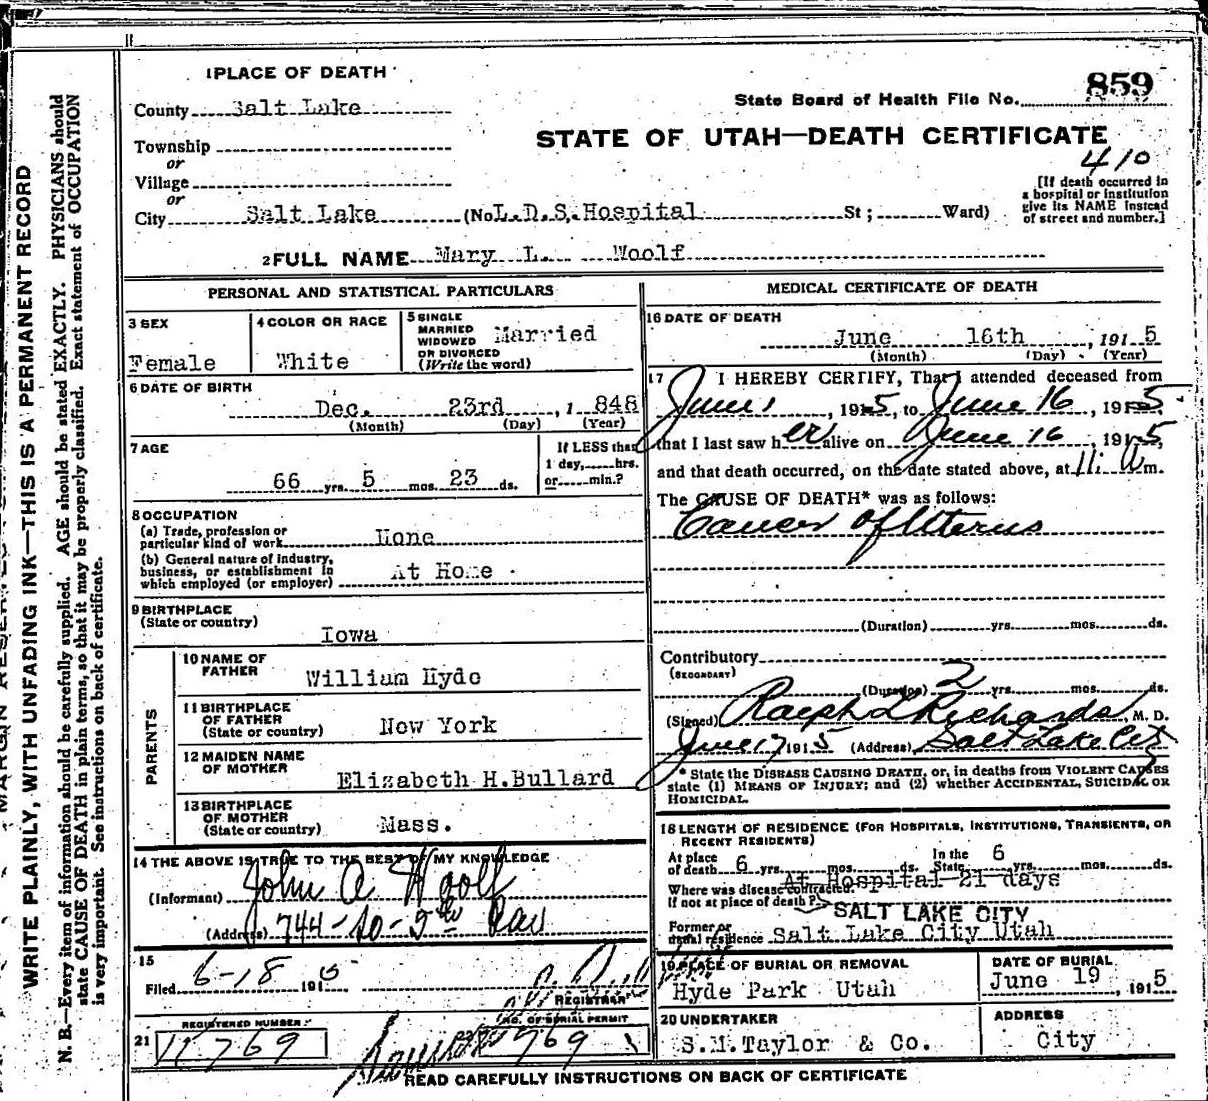 1 PLACE OF DEATH
County Salt Lake
Township
or
Village
or
City Salt Lake (No. L.D.S. Hospital St; Ward)
State Board of Health File No. 859
STATE OF UTAH—DEATH CERTIFICATE
410
[If death occurred in
a hospital or institution
give its NAME instead
of street and number.]
2 FULL NAME Mary L. Woolf
PERSONAL AND STATISTICAL PARTICULARS
3 SEX
Female
4 COLOR OR RACE
White
5 SINGLE
MARRIED
WIDOWED
OR DIVORCED
(Write the word)
Married
6 DATE OF BIRTH
Dec. 23rd, 1 848
(Month) (Day) (Year)
7 AGE
66 yrs. 5 mos. 23 ds.
If LESS than
1 day, hrs.
or min.?
8 OCCUPATION
(a) Trade, profession or
particular kind of work None
(b) General nature of industry,
business, or establishment in
which employed (or employer) At Home
9 BIRTHPLACE
(State or country)
Iowa
PARENTS
10 NAME OF
FATHER
William Hyde
11 BIRTHPLACE
OF FATHER
(State or country)
New York
12 MAIDEN NAME
OF MOTHER
Elizabeth H. Bullard
13 BIRTHPLACE
OF MOTHER
(State or country)
Mass.
14 THE ABOVE IS TRUE TO THE BEST OF MY KNOWLEDGE
(Informant) John A Woolf
(Address) 744-10-
15
Filed 6-18 1915
REGISTRAR
REGISTERED NUMBER
NO. OF BURIAL PERMIT
21 11769
769
MEDICAL CERTIFICATE OF DEATH
16 DATE OF DEATH
June 16th, 1915
(Month) (Day) (Year)
17 I HEREBY CERTIFY, That I attended deceased from
June 1, 1915, to June 16, 1915
that I last saw her alive on June 16, 1915,
and that death occurred, on the date stated above, at 11: A m.
The CAUSE OF DEATH* was as follows:
Cancer of Uterus
(Duration) yrs. mos. ds.
Contributory
(SECONDARY)
(Duration) 2 yrs. mos. ds.
(Signed) Ralph T Richards, M. D.
June 17 1915 (Address) Salt Lake City
* State the DISEASE CAUSING DEATH, or, in deaths from VIOLENT CAUSES
state (1) MEANS OF INJURY; and (2) whether ACCIDENTAL, SUICIDAL OR
HOMICIDAL.
18 LENGTH OF RESIDENCE (FOR HOSPITALS, INSTITUTIONS, TRANSIENTS, OR
RECENT RESIDENTS)
At place
of death 6 yrs. mos. ds.
In the
State 6 yrs. mos. ds.
At Hospital 21 days
Where was disease contracted
If not at place of death?
SALT LAKE CITY
Former or
usual residence Salt Lake City Utah
19 PLACE OF BURIAL OR REMOVAL
Hyde Park Utah
DATE OF BURIAL
June 19, 1915
20 UNDERTAKER
S.M. Taylor & Co.
ADDRESS
City
READ CAREFULLY INSTRUCTIONS ON BACK OF CERTIFICATE
WRITE PLAINLY, WITH UNFADING INK—THIS IS A PERMANENT RECORD
N. B.—Every item of information should be carefully supplied. AGE should be stated EXACTLY. PHYSICIANS should
state CAUSE OF DEATH in plain terms, so that it may be properly classified. Exact statement of OCCUPATION
is very important. See instructions on back of certificate.